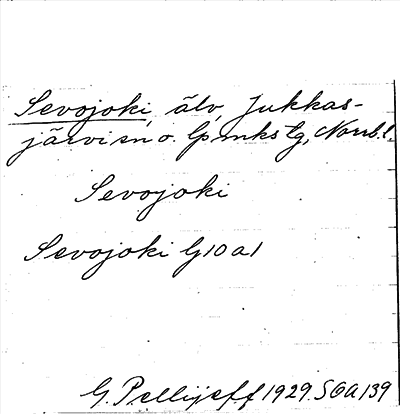 Sevojoki, älv, Jukkas-
järvi sn o. lpmks tg, Norrb.l.
Sevojoki
Sevojoki G10a1
G. Pellijeff 1929. SOA 139